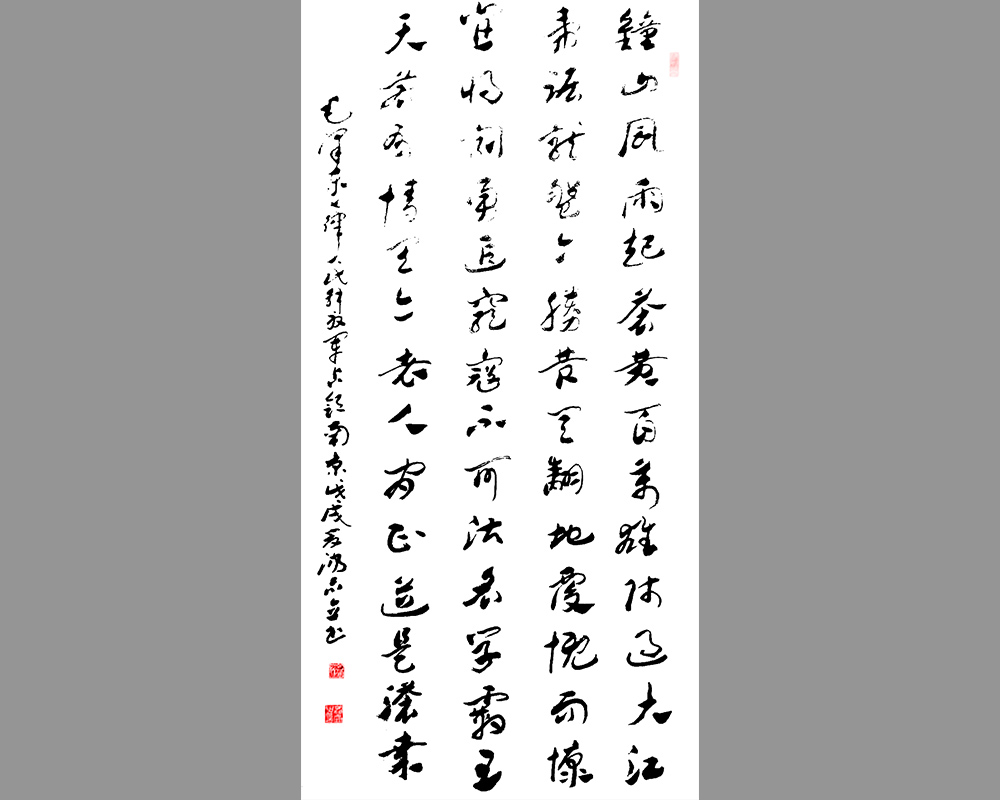 鐘山風雨起蒼黄百萬雄师過大江
虎踞龍盤今勝昔天翻地覆慨而慷
宜將剩勇追窮寇不可沽名学霸王
天若有情天亦老人间正道是滄桑
毛澤東七律人民解放軍占領南京戊戌